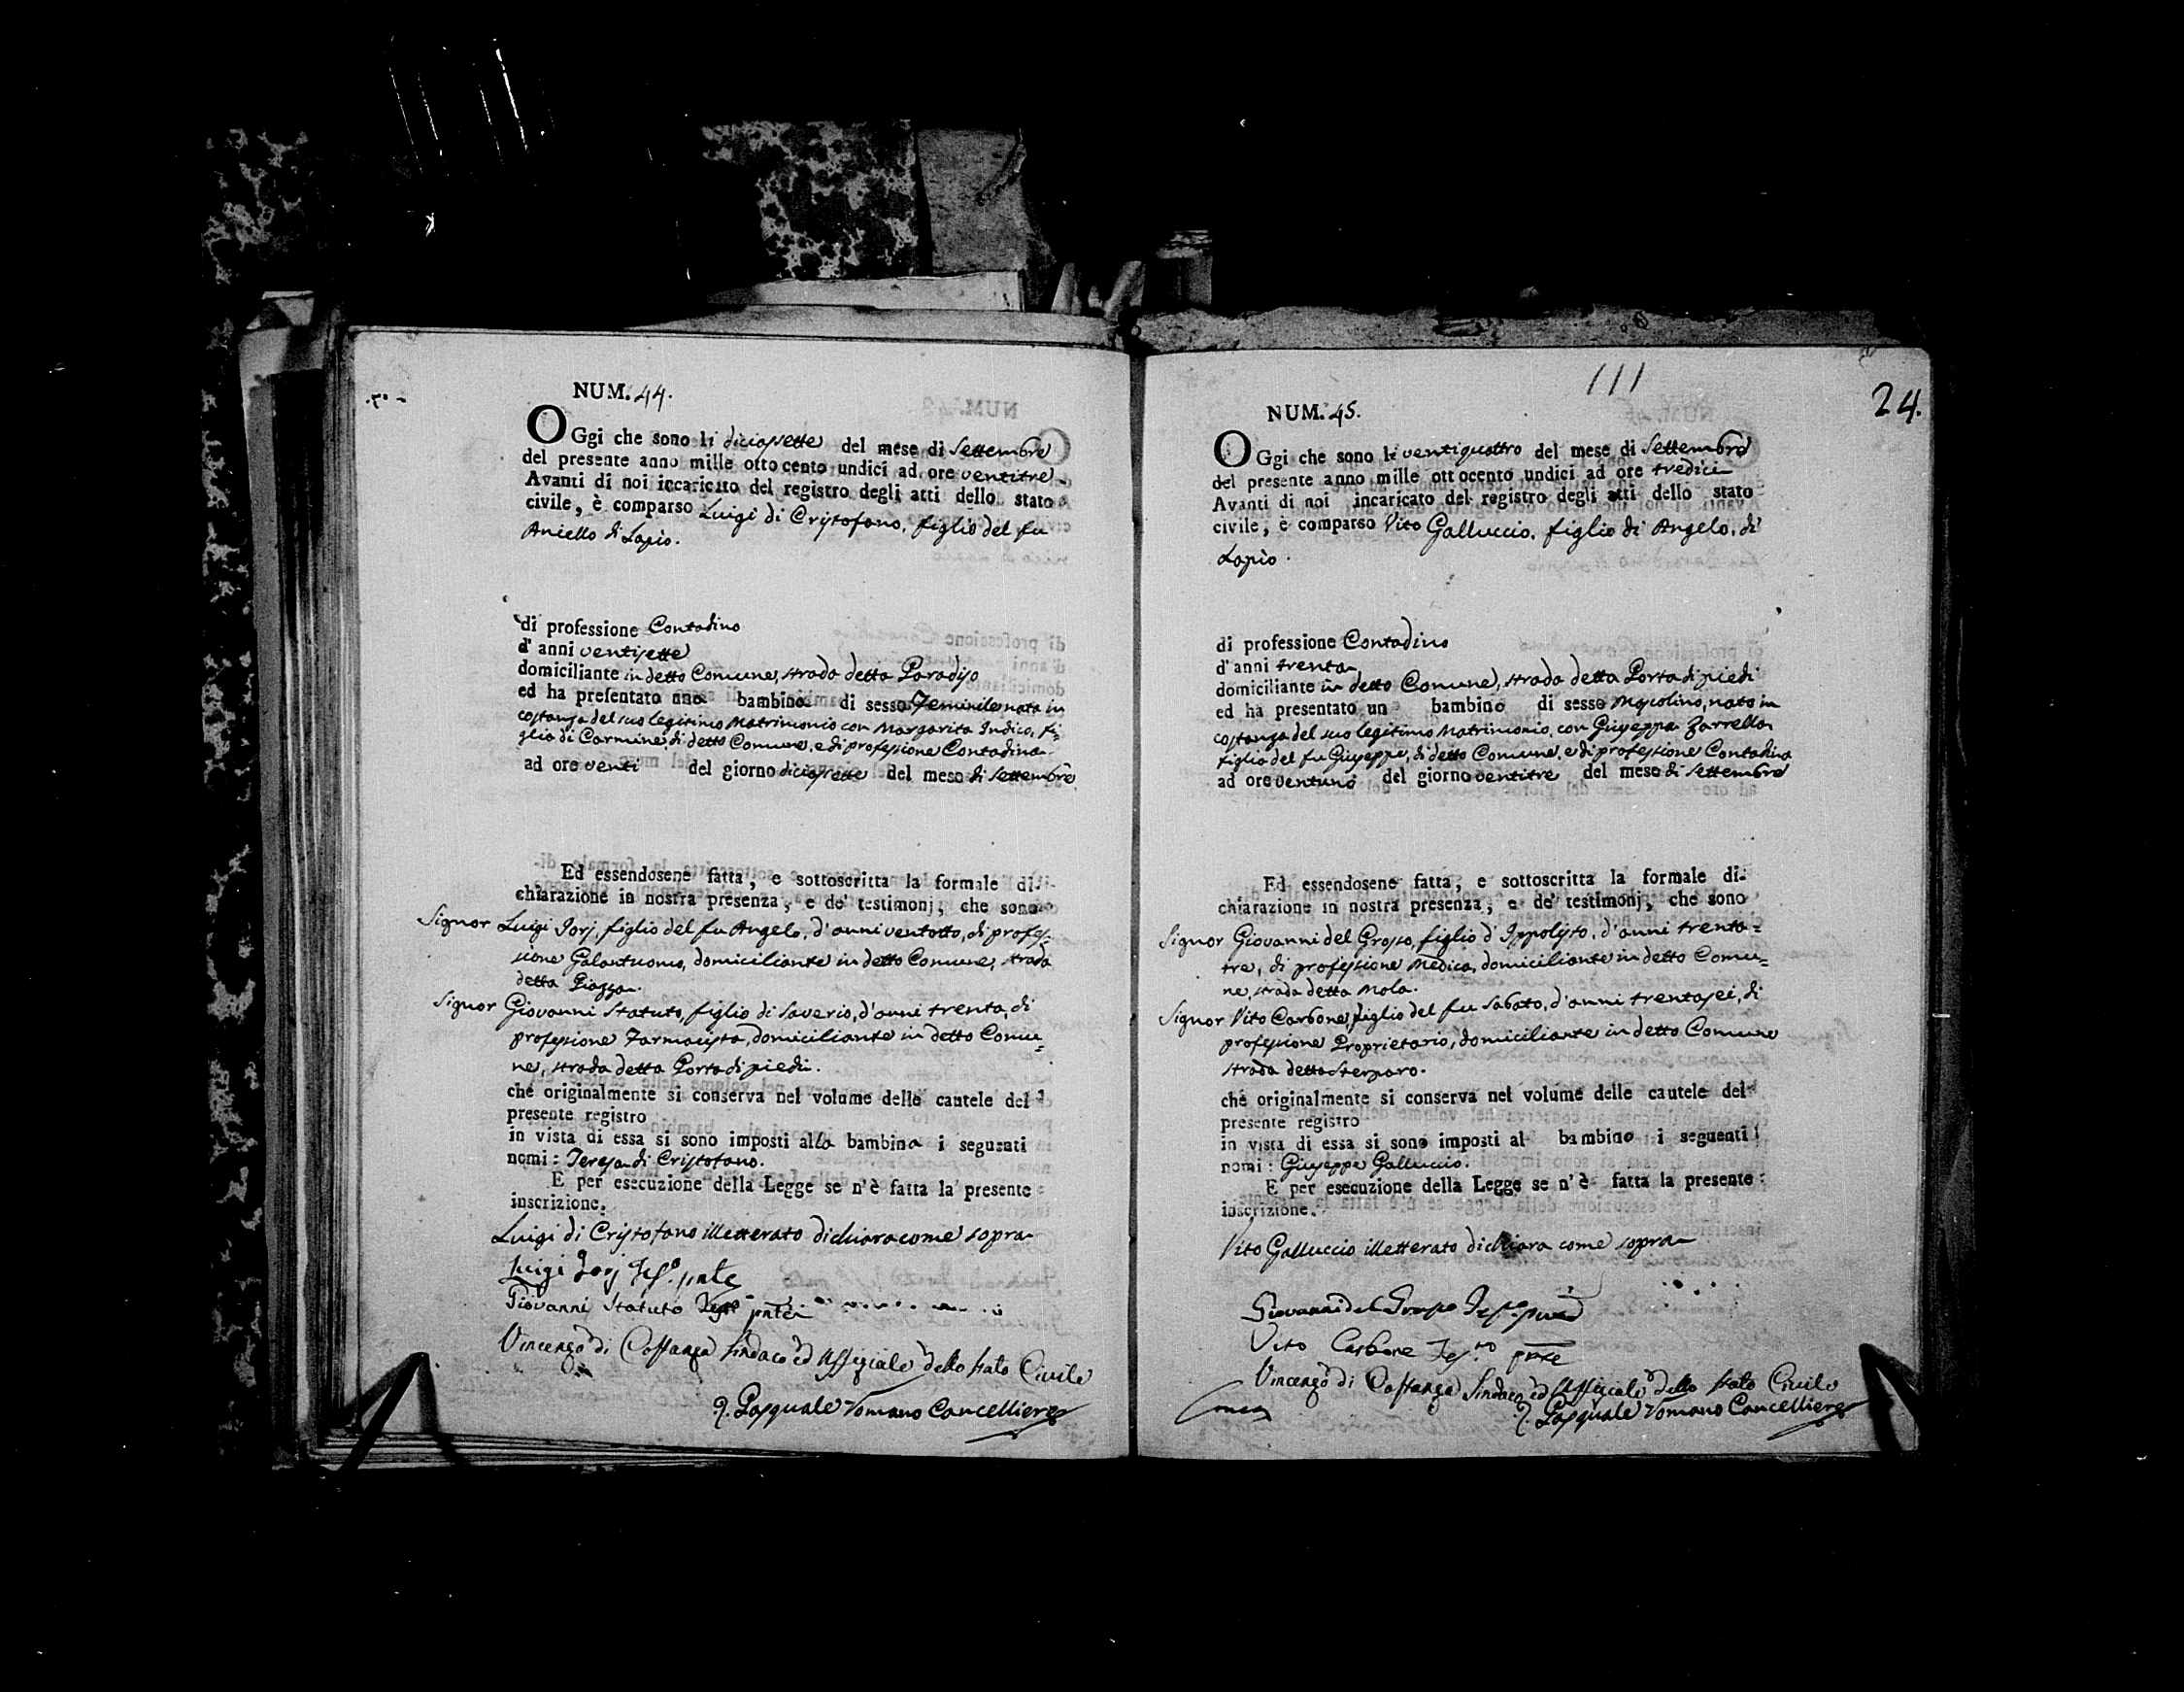 NUM. 44.
OGgi che sono li diciassette del mese di Settembre
del presente anno mille ottocento undici ad ore ventitre
Avanti di noi incaricato del registro degli atti dello stato
civile, è comparso Luigi di Cristofano, figlio del fu
Aniello di Lapio.
di professione Contadino
d'anni ventisette
domiciliante in detto Comune, strada detta Paradiso
ed ha presentato una bambina di sesso Feminile nata in
costanza del suo legitimo Matrimonio con Margarita Indico, fi=
glia di Carmine, di detto Comune, e di professione Contadina
ad ore venti del giorno diciassette del mese di Settembre
Ed essendosene fatta, e sottoscritta la formale di-
chiarazione in nostra presenza, e de' testimonj, che sono
Signor Luigi Jorj, figlio del fu Angelo, d'anni ventotto, di profes=
sione Galantuomo, domiciliante in detto Comune, strada
detta Piazza.
Signor Giovanni Statuto, figlio di Saverio, d'anni trenta, di
professione Farmacista, domiciliante in detto Comu=
ne, strada detta Porta di piedi.
che originalmente si conserva nel volume delle cautele del
presente registro
in vista di essa si sono imposti alla bambina i seguenti
nomi: Teresa di Cristofano.
E per esecuzione della Legge se n'è fatta la presente
inscrizione.
Luigi di Cristofano illetterato dichiara come sopra
Luigi Jorj Tes.º pnte
Giovanni Statuto
Vincenzo di Costanza Sindaco ed Uffiziale dello stato Civile
Pasquale Romano Cancelliere
111
24.
NUM. 45.
OGgi che sono li ventiquattro del mese di Settembre
del presente anno mille ottocento undici ad ore tredici
Avanti di noi incaricato del registro degli atti dello stato
civile, è comparso Vito Galluccio, figlio di Angelo, di
Lapio.
di professione Contadino
d'anni trenta
domiciliante in detto Comune, strada detta Porta di piedi
ed ha presentato un bambino di sesso Mascolino, nato in
costanza del suo legitimo Matrimonio, con Giuseppa Zarrella
figlia del fu Giuseppe, di detto Comune, e di professione Contadina
ad ore ventuno del giorno ventitre del mese di Settembre
Ed essendosene fatta, e sottoscritta la formale di-
chiarazione in nostra presenza, e de' testimonj, che sono
Signor Giovanni del Grosso, figlio d'Ippolisto, d'anni trenta=
tre, di professione Medico, domiciliante in detto Comu=
ne, strada detta Mola.
Signor Vito Carbone, figlio del fu Sabato, d'anni trentasei, di
professione Proprietario, domiciliante in detto Comune
strada detta Sterparo.
che originalmente si conserva nel volume delle cautele del
presente registro
in vista di essa si sono imposti al bambino i seguenti
nomi: Giuseppe Galluccio.
E per esecuzione della Legge se n'è fatta la presente
inscrizione.
Vito Galluccio illetterato dichiara come sopra
Giovanni del Grosso
Vito Carbone Tes.to pnte
Vincenzo di Costanza Sindaco ed Uffiziale dello stato Civile
Pasquale Romano Cancelliere